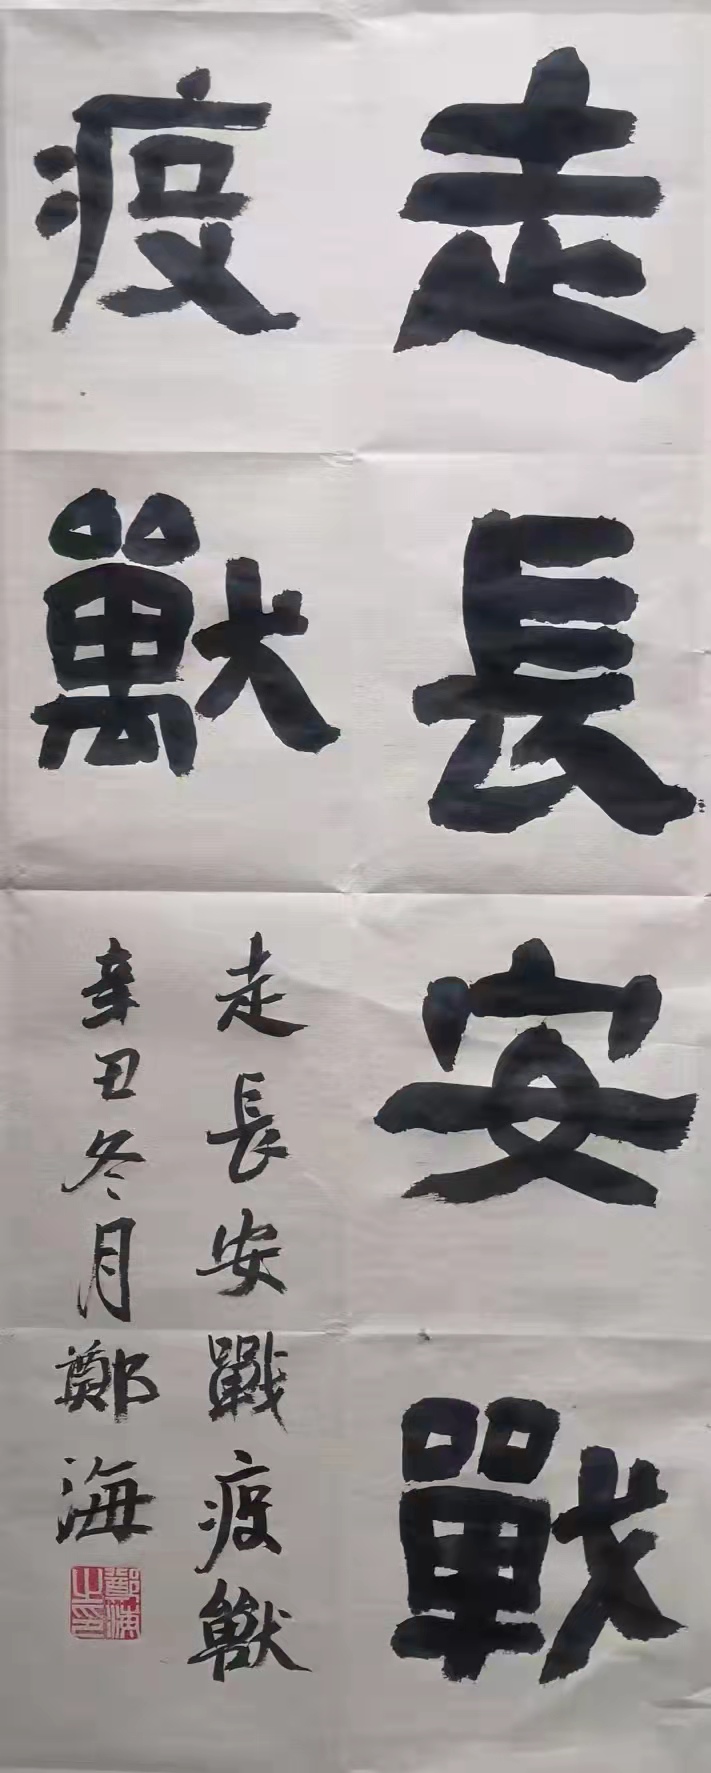 走長安戰
疫獸
走長安戰疫獸
辛丑冬月鄭海
鄭海之印